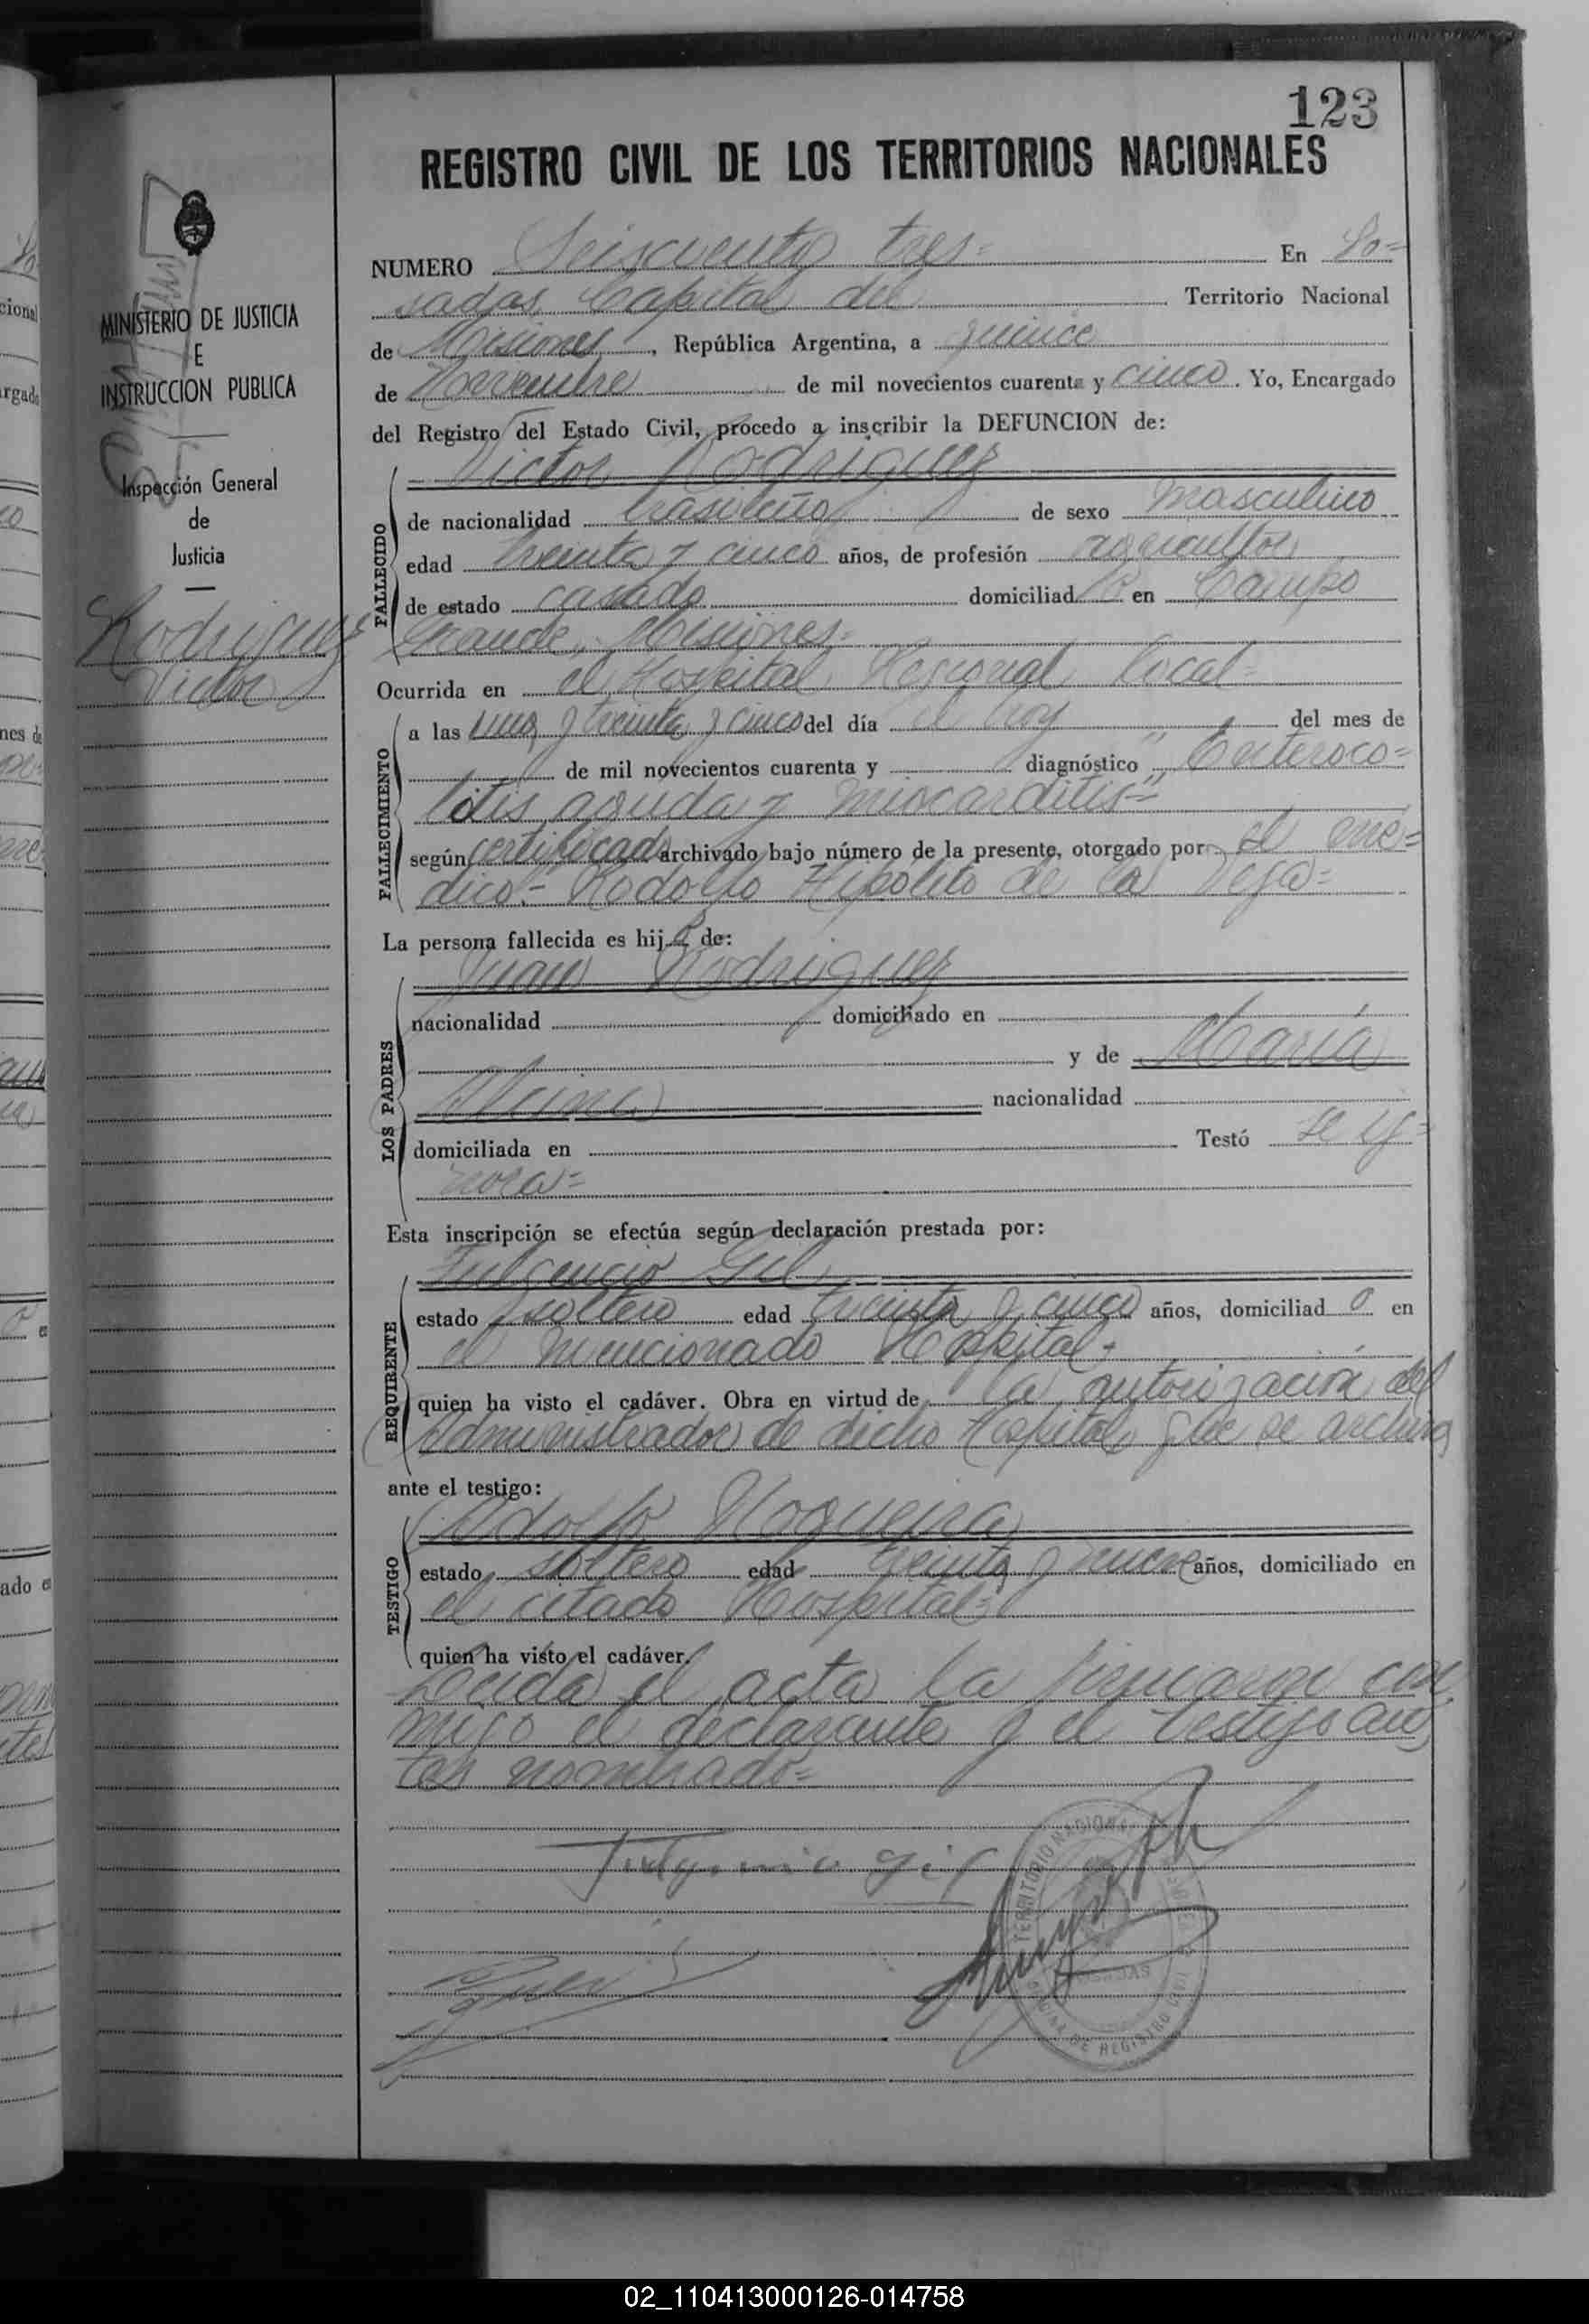 123
REGISTRO CIVIL DE LOS TERRITORIOS NACIONALES
MINISTERIO DE JUSTICIA
E
INSTRUCCION PUBLICA
Inspección General
de
Justicia
Rodriguez
Victor
NUMERO Seiscientos tres= En Po=
sadas, Capital del Territorio Nacional
de Misiones, República Argentina, a quince
de Noviembre de mil novecientos cuarenta y cinco. Yo, Encargado
del Registro del Estado Civil, procedo a inscribir la DEFUNCION de:
Victor Rodriguez
FALLECIDO
de nacionalidad brasileño de sexo masculino
edad treinta y cinco años, de profesión agricultor
de estado casado domiciliado en Campo
Grande, Misiones=
Ocurrida en el Hospital Regional local=
FALLECIMIENTO
a las una y treinta y cinco del día de hoy del mes de
de mil novecientos cuarenta y diagnóstico "Enteroco=
litis aguda y miocarditis"=
según certificado archivado bajo número de la presente, otorgado por el mé=
dico= Rodolfo Hipolito de la Vega=
La persona fallecida es hijo de:
Juan Rodriguez
LOS PADRES
nacionalidad domiciliado en
y de María
nacionalidad
domiciliada en Testó se ig=
nora=
Esta inscripción se efectúa según declaración prestada por:
Fulgencio Gil
REQUIRENTE
estado soltero edad treinta y cinco años, domiciliado en
el mencionado Hospital=
quien ha visto el cadáver. Obra en virtud de la autorización del
Administrador de dicho Hospital que se archiva
ante el testigo:
Adolfo Nogueira
TESTIGO
estado soltero edad treinta y nueve años, domiciliado en
el citado Hospital=
quien ha visto el cadáver.
Leida el acta la firmaron con
migo el declarante y el testigo an
tes nombrado=
Fulgencio gil
TERRITORIO NACIONAL
POSADAS
DE REGISTRO CIVIL
02_110413000126-014758